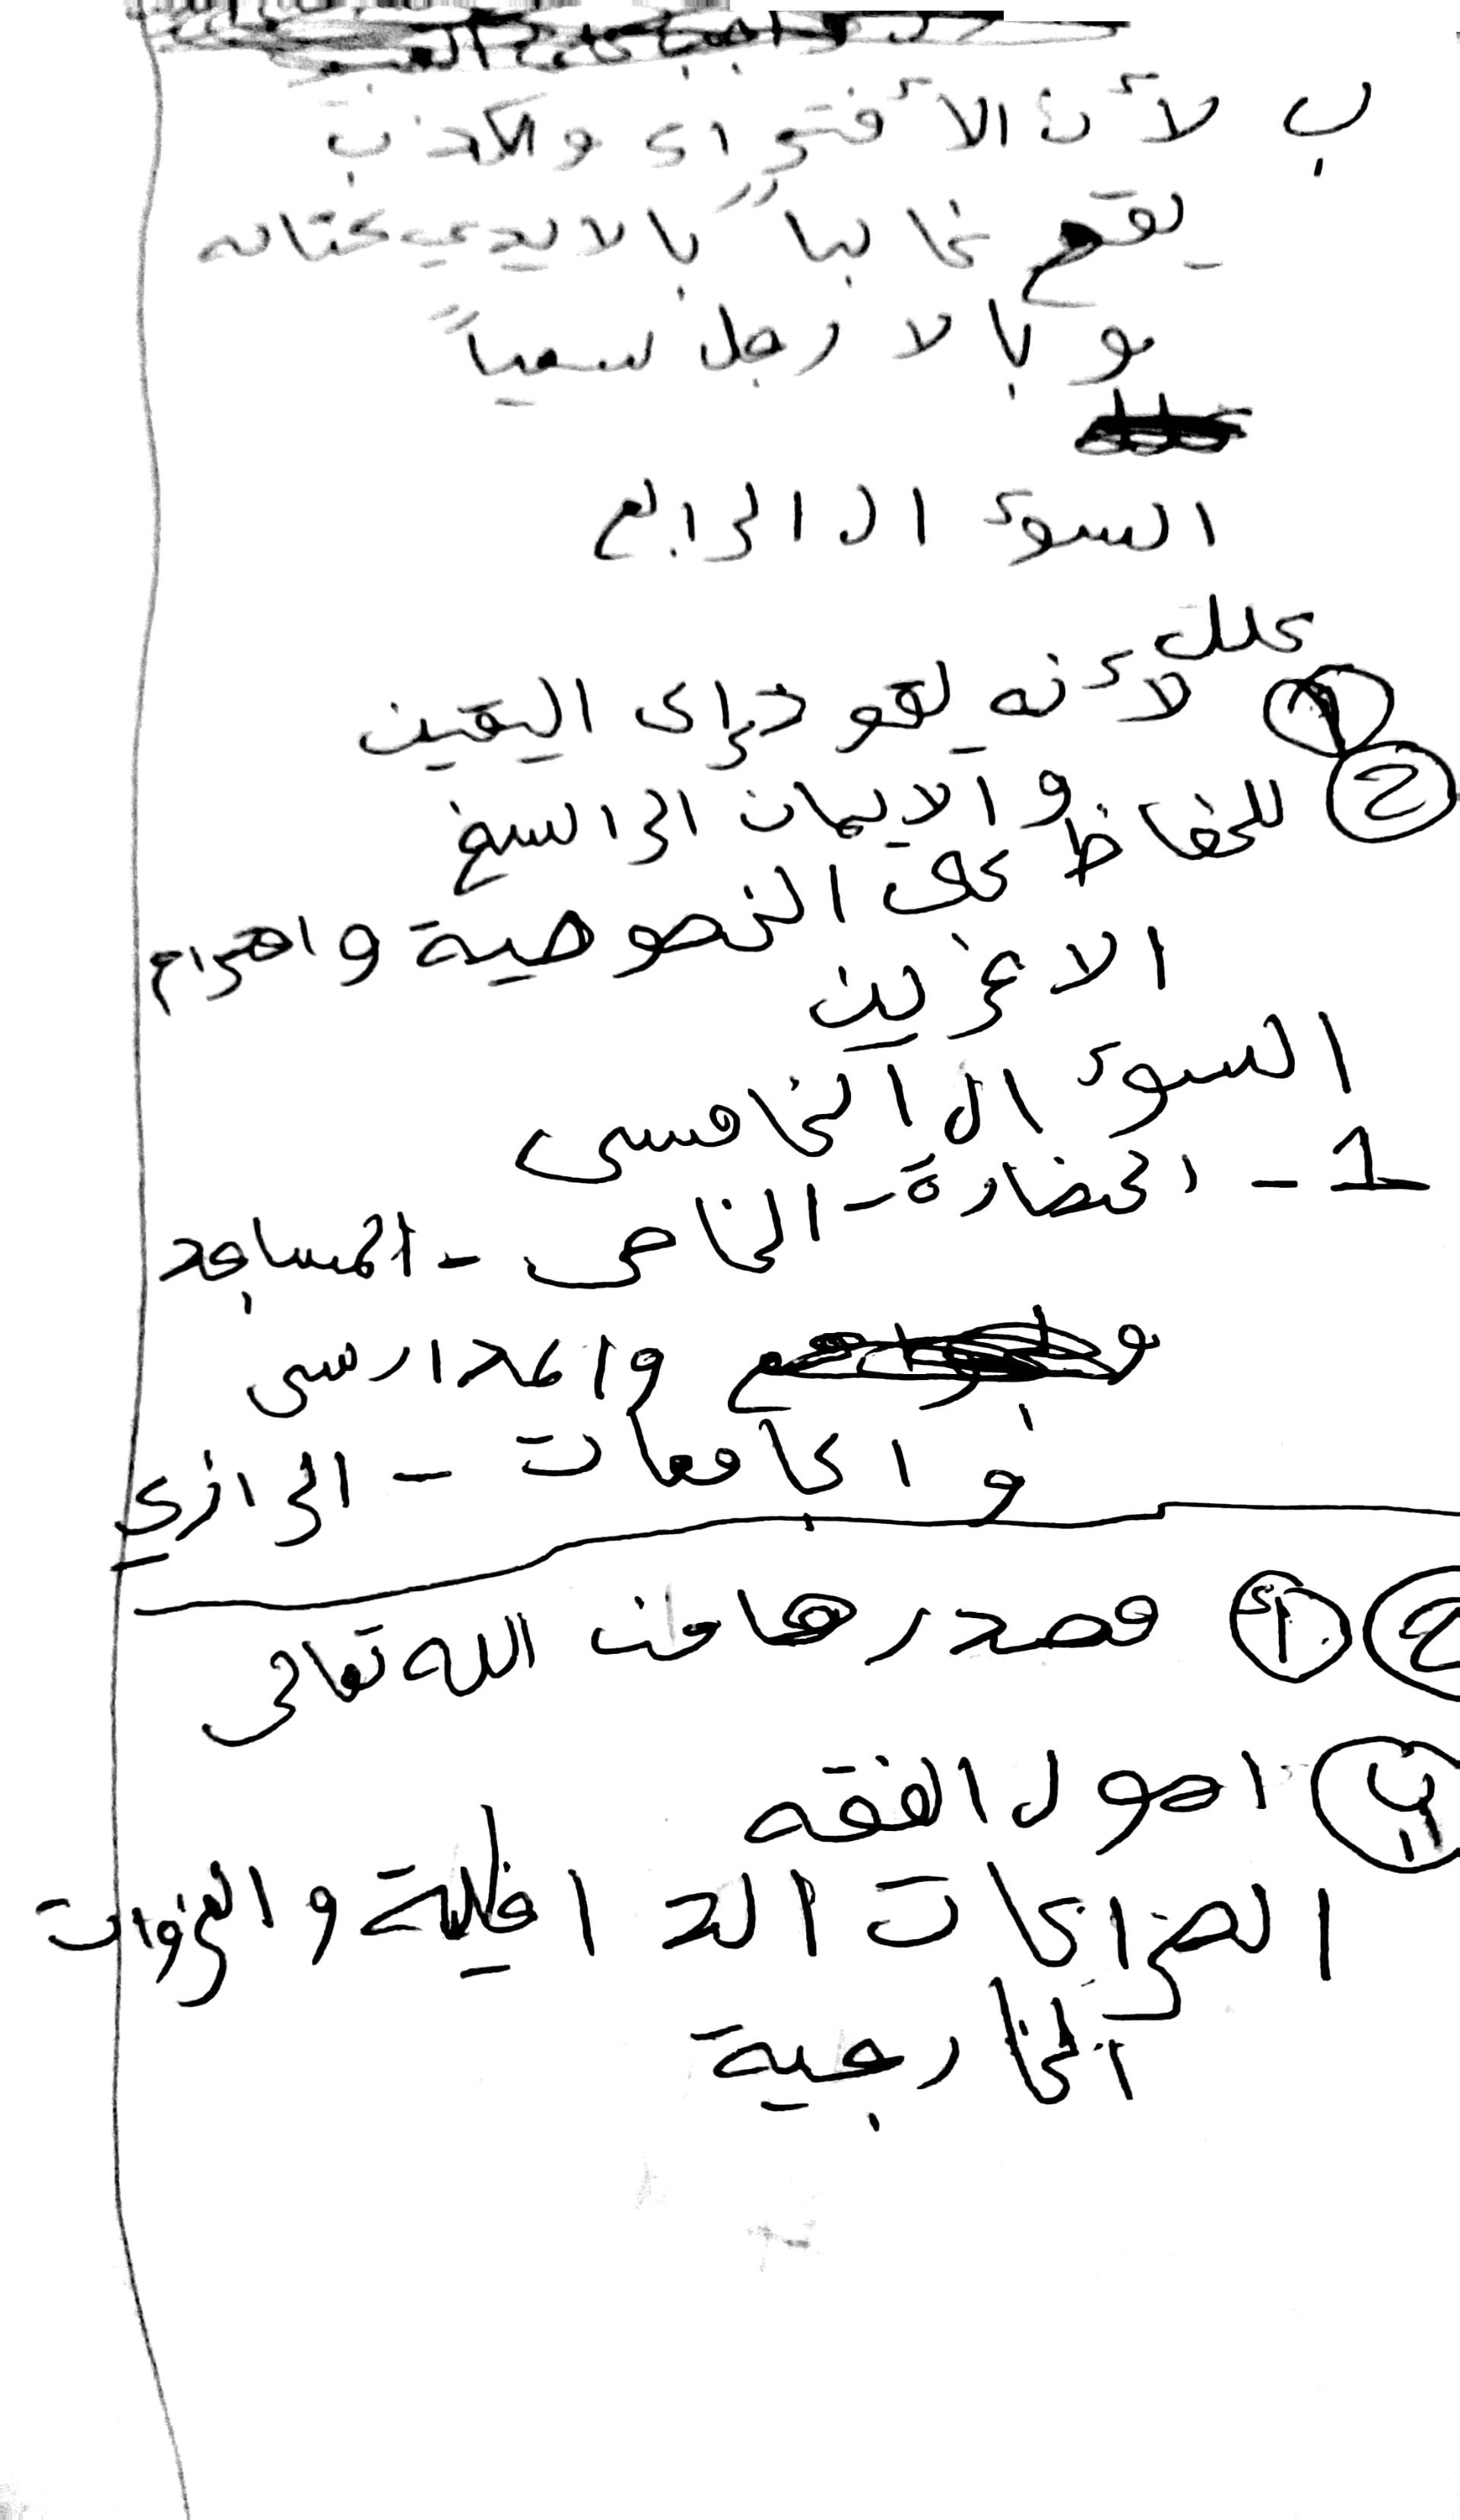 ب لأن الأفتراء والكذب
يقع غالباً بالايدي كتابه
وبالارجل سعياً
السوء ال الرابع
علل
① لأنه يقود إلى اليقين
والايمان الراسخ
② للحفاظ على الخصوصية واحترام
الاخرين
السوء ال الخامس
1 - الحضارة - الخاص - المساجد
والمدارس
والجامعات - الرازي
② أ مصدرها من الله تعالى
ب اصول الفقه
الصراعات الداخلية والغزوات
الخارجية